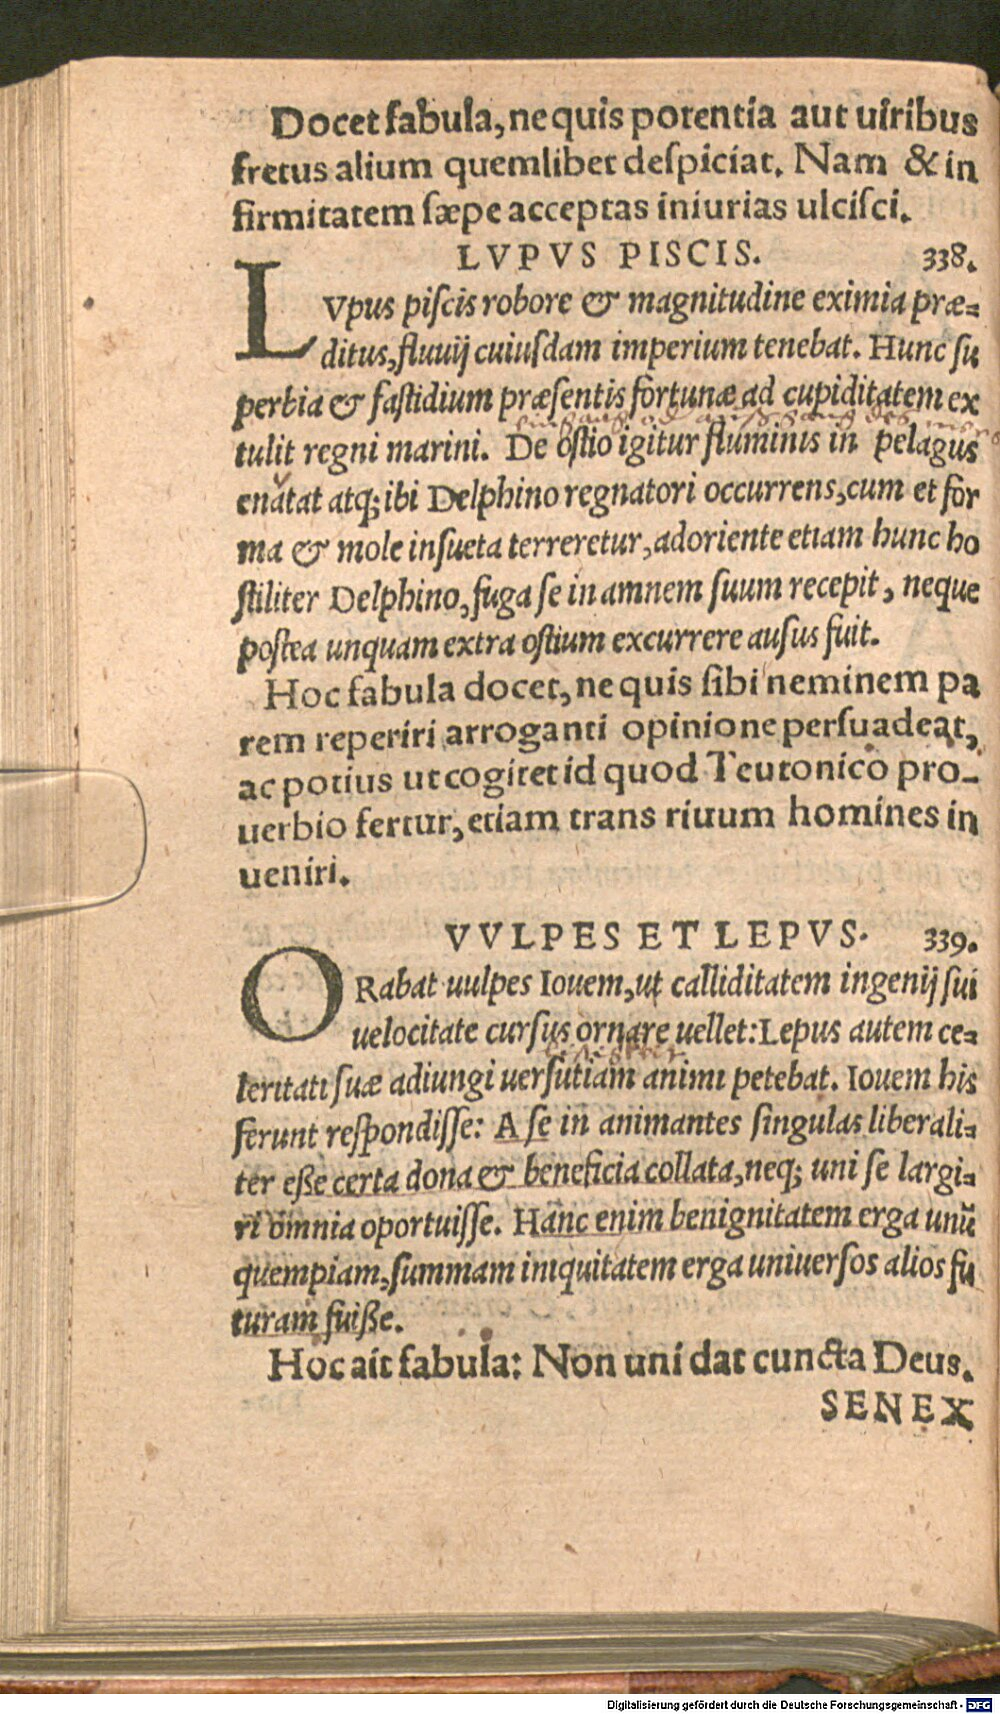 Docet fabula, ne quis potentia aut uiribus
fretus alium quemlibet deſpiciat. Nam & in
firmitatem ſæpe acceptas iniurias ulciſci.
LVPVS PISCIS. 338.
LVpus piſcis robore & magnitudine eximia præ-
ditus, fluuij cuiuſdam imperium tenebat. Hunc ſu
perbia & faſtidium præſentis fortunæ ad cupiditatem ex
tulit regni marini. De oſtio igitur fluminis in pelagus
enatat atq; ibi Delphino regnatori occurrens, cum et for
ma & mole inſueta terreretur, adoriente etiam hunc ho
ſtiliter Delphino, fuga ſe in amnem ſuum recepit, neque
poſtea unquam extra oſtium excurrere auſus fuit.
Hoc fabula docet, ne quis ſibi neminem pa
rem reperiri arroganti opinione perſuadeat,
ac potius ut cogitet id quod Teutonico pro-
uerbio fertur, etiam trans riuum homines in
ueniri.
VVLPES ET LEPVS. 339.
ORabat uulpes Iouem, ut calliditatem ingenij ſui
uelocitate curſus ornare uellet: Lepus autem ce-
leritati ſuæ adiungi uerſutiam animi petebat. Iouem his
ferunt reſpondiſſe: A ſe in animantes ſingulas liberali-
ter eße certa dona & beneficia collata, neq; uni ſe largi-
ri omnia oportuiſſe. Hanc enim benignitatem erga unū
quempiam, ſummam iniquitatem erga uniuerſos alios fu
turam fuiße.
Hoc ait fabula: Non uni dat cuncta Deus.
SENEX
Digitalisierung gefördert durch die Deutsche Forschungsgemeinschaft - DFG